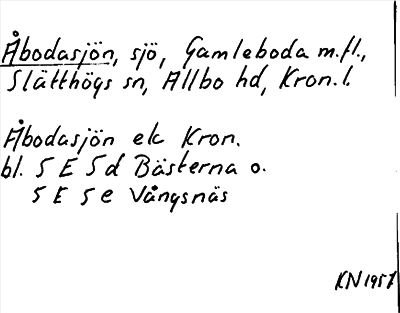 Åbodasjön, sjö, Gamleboda m.fl.,
Slätthögs sn, Allbo hd, Kron. l.
Åbodasjön ek Kron.
bl. 5 E 5 d Bästerna o.
5 E 5 e Vångsnäs
KN 1957